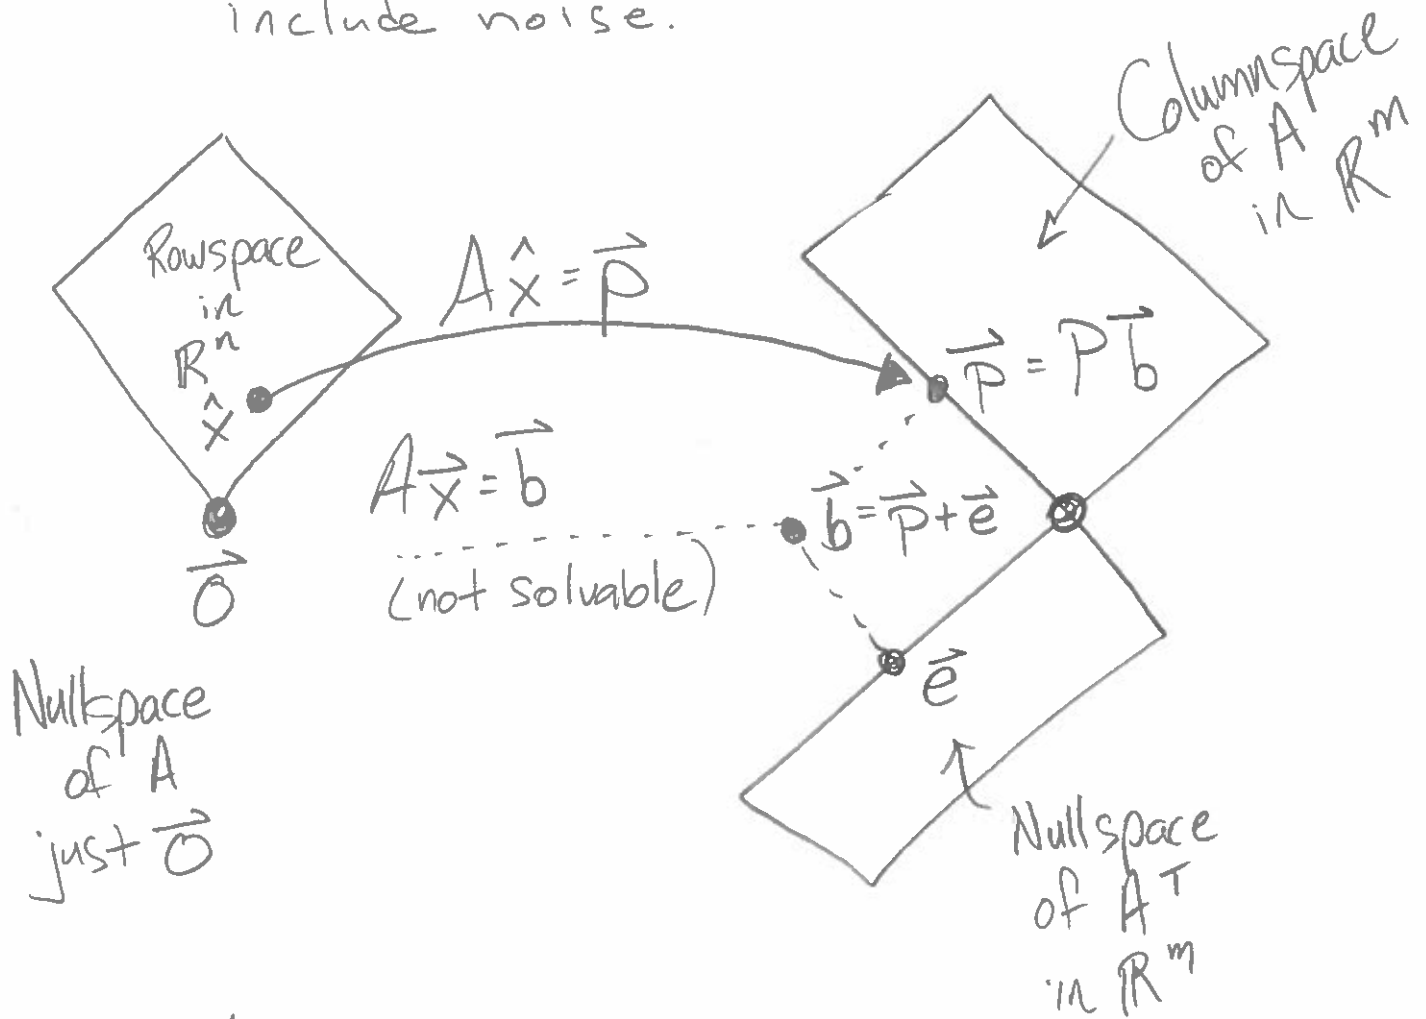 include noise.
Columnspace
of A
in ℝᵐ
Rowspace
in
ℝⁿ
x̂
0⃗
Ax̂ = p⃗
p⃗ = Pb⃗
Ax⃗ = b⃗
(not solvable)
b⃗ = p⃗ + e⃗
e⃗
Nullspace
of A
just 0⃗
Nullspace
of Aᵀ
in ℝᵐ